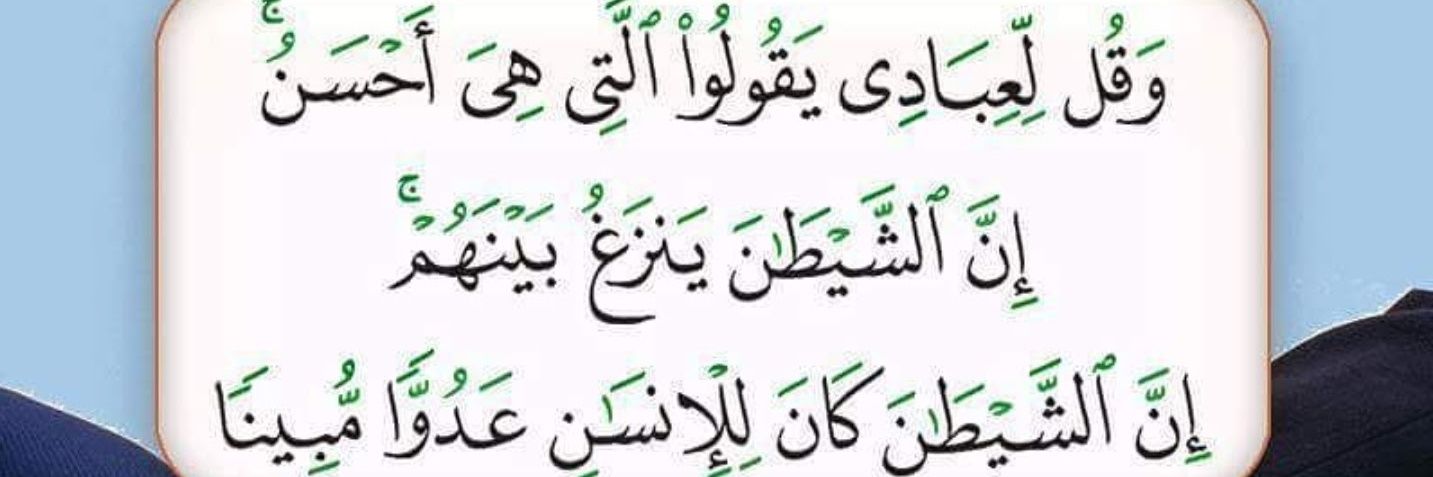 وَقُل لِّعِبَادِى يَقُولُوا۟ ٱلَّتِى هِىَ أَحْسَنُ ۚ
إِنَّ ٱلشَّيْطَٰنَ يَنزَغُ بَيْنَهُمْ ۚ
إِنَّ ٱلشَّيْطَٰنَ كَانَ لِلْإِنسَٰنِ عَدُوًّا مُّبِينًا